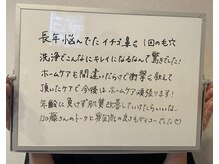 長年悩んでたイチゴ鼻が1回の毛穴
洗浄でこんなにキレイになるなんて驚きでした!
ホームケアも間違いだらけで衝撃 教えて
頂いたケアで今後はホームケア頑張ります!
年齢に負けず肌質改善していけたらいいな。
加藤さんのトークと雰囲気の良さもサイコーでした♡